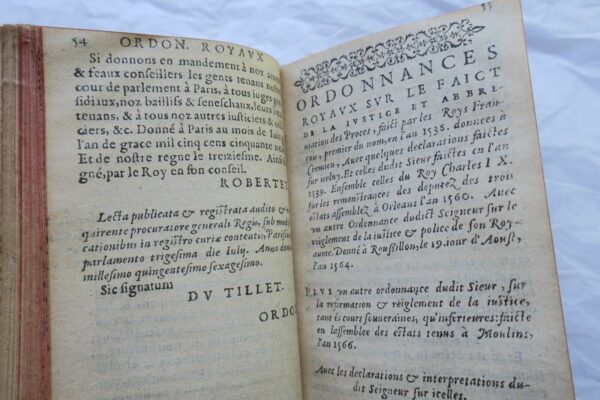 54 ORDON. ROYAVX
Si donnons en mandement à noz amez
& feaux conseillers les gents tenans nostre
cour de parlement à Paris, à tous iuges pre-
sidiaux, noz baillifs & seneschaux, leurs lieu-
tenans, & à tous noz autres iusticiers & offi-
ciers, &c. Donné à Paris au mois de
l'an de grace mil cinq cens cinquante
Et de nostre regne le treziesme. Ainsi
gné, par le Roy en son conseil.
ROBERTET
Lecta publicata & registrata audito &
quirente procuratore generali Regis, sub modi-
cationibus in registro curiæ contentis, Parisiis
parlamento trigesima die Iuly. Anno domi
millesimo quingentesimo sexagesimo.
Sic signatum
DV TILLET.
ORDO
55
ORDONNANCES
ROYAVX SVR LE FAICT
DE LA IVSTICE ET ABBRE-
uiation des Proces, faict par les Roys Fran-
çou, premier du nom, en l'an 1535. données à
Cremieu, Auec quelques declarations faictes
sur iceluy. Et celles dudict Sieur faictes en l'an
1539. Ensemble celles du Roy Charles I X.
sur les remonstrances des deputez des trois
estats assemblez à Orleans l'an 1560. Auec
vn autre Ordonnance dudict Seigneur sur le
reiglement de la iustice & police de son Roy-
aume. Donné à Roussillon, le 19. iour d'Aoust,
l'an 1564.
PLVS vn autre ordonnance dudit Sieur, sur
la reformation & reiglement de la iustice,
tant és cours souueraines, qu'inferieures: faicte
en l'assemblee des estats tenus à Moulins,
l'an 1566.
Auec les declarations & interpretations du-
dit Seigneur sur icelles.